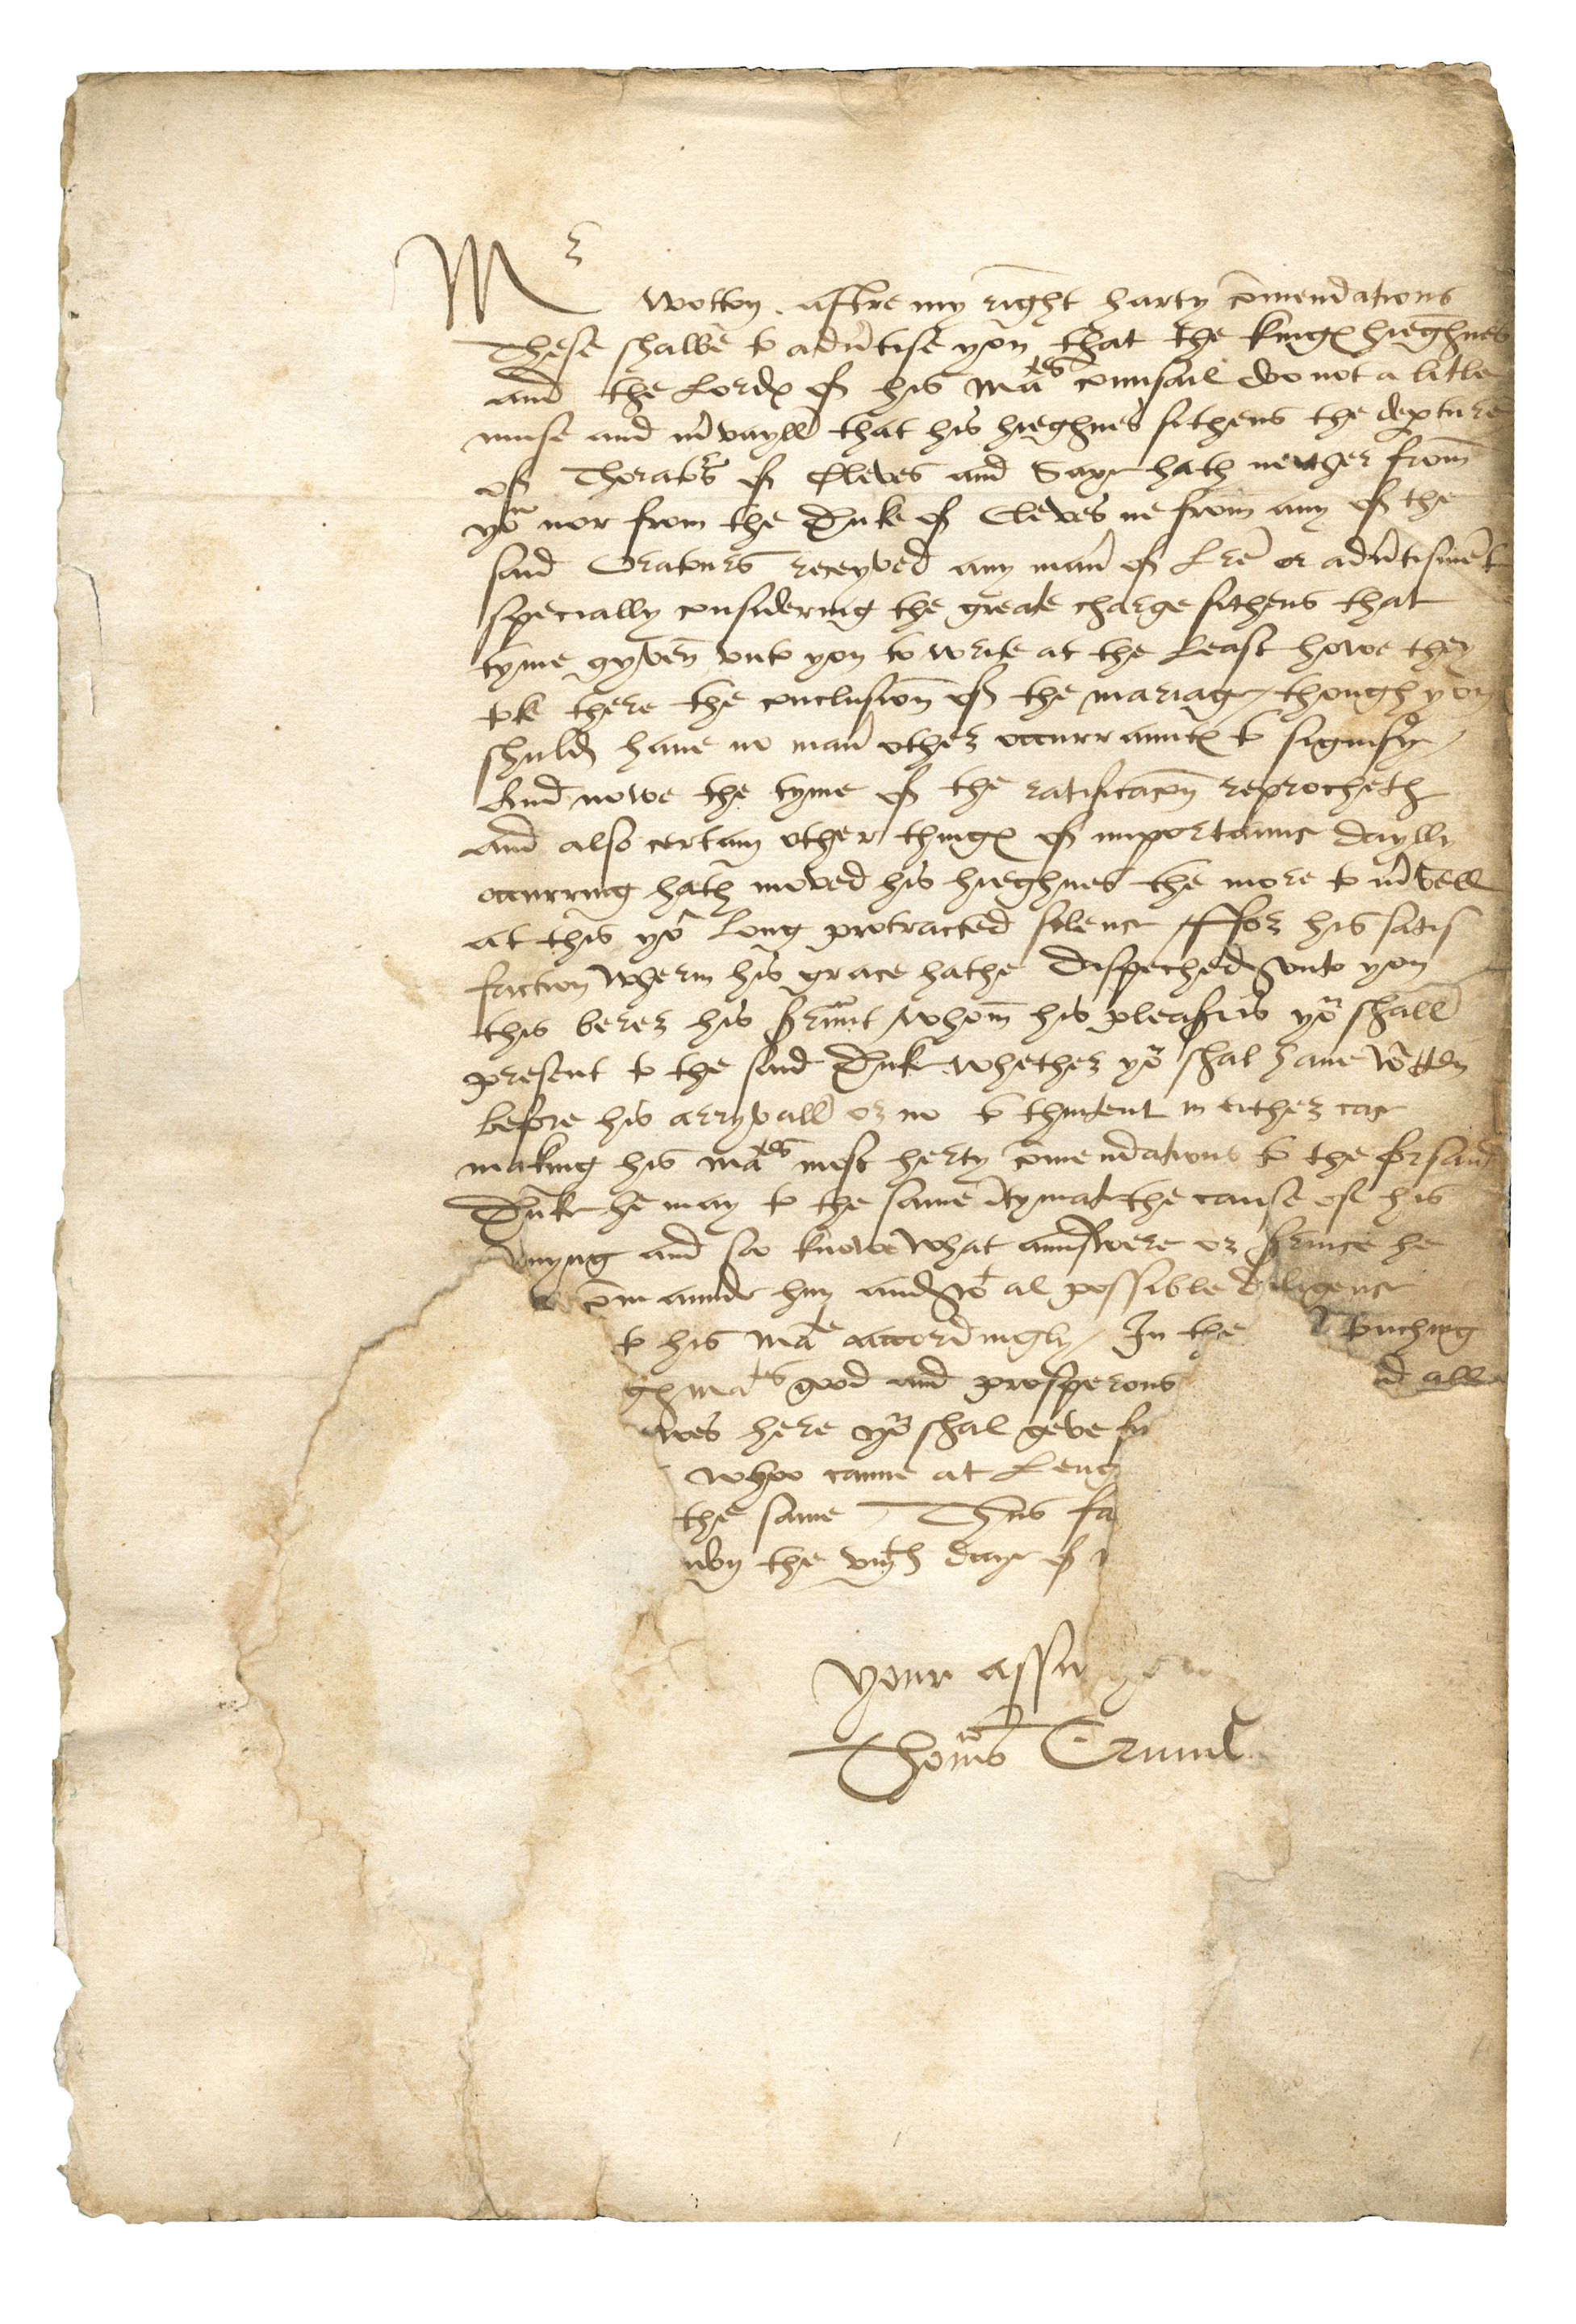 Mr
Wotton. aftre my right harty comendations
These shalbe to advertise you that the kinges hieghnes
and the Lordes of his Mates counsail doo not a litle
muse and mervayll that his hieghnes sithens the departure
of Thorators of Cleves and Saxe hath neither from
you nor from the Duke of Cleves ne from any of the
said Oratours receyved any maner of lre or advertisment
specially considering the greate charge sithens that
tyme gyven unto you to write at the Least howe they
tok there the conclusion of the mariage, though you
shuld have no maner other occurrauntes to signifye,
And nowe the tyme of the ratificacon reprocheth
and also certain other thinges of importaunce daylly
occurring hath moved his hieghnes the more to mervell
at this yor Long protracted silence, ffor his satis
faction wherin his grace hathe dispeched unto you
this berer his servaunt, whom his pleasur is you shall
present to the said Duke whether you shal have written
before his arryvall or no to thintent in either case
making his Mates most herty comendations to the forsaid
Duke he may to the same intymate the cause of his
myng and soo knowe what aunswere or service he
comaunde him and wt al possible diligence
to his Mate accordingly, In the touching
ges Mates good and prosperous d all
wes here you shal geve
whoo came at Leng
the same Thus fa
the viijth daye of
Your assu
Thomas Crumw